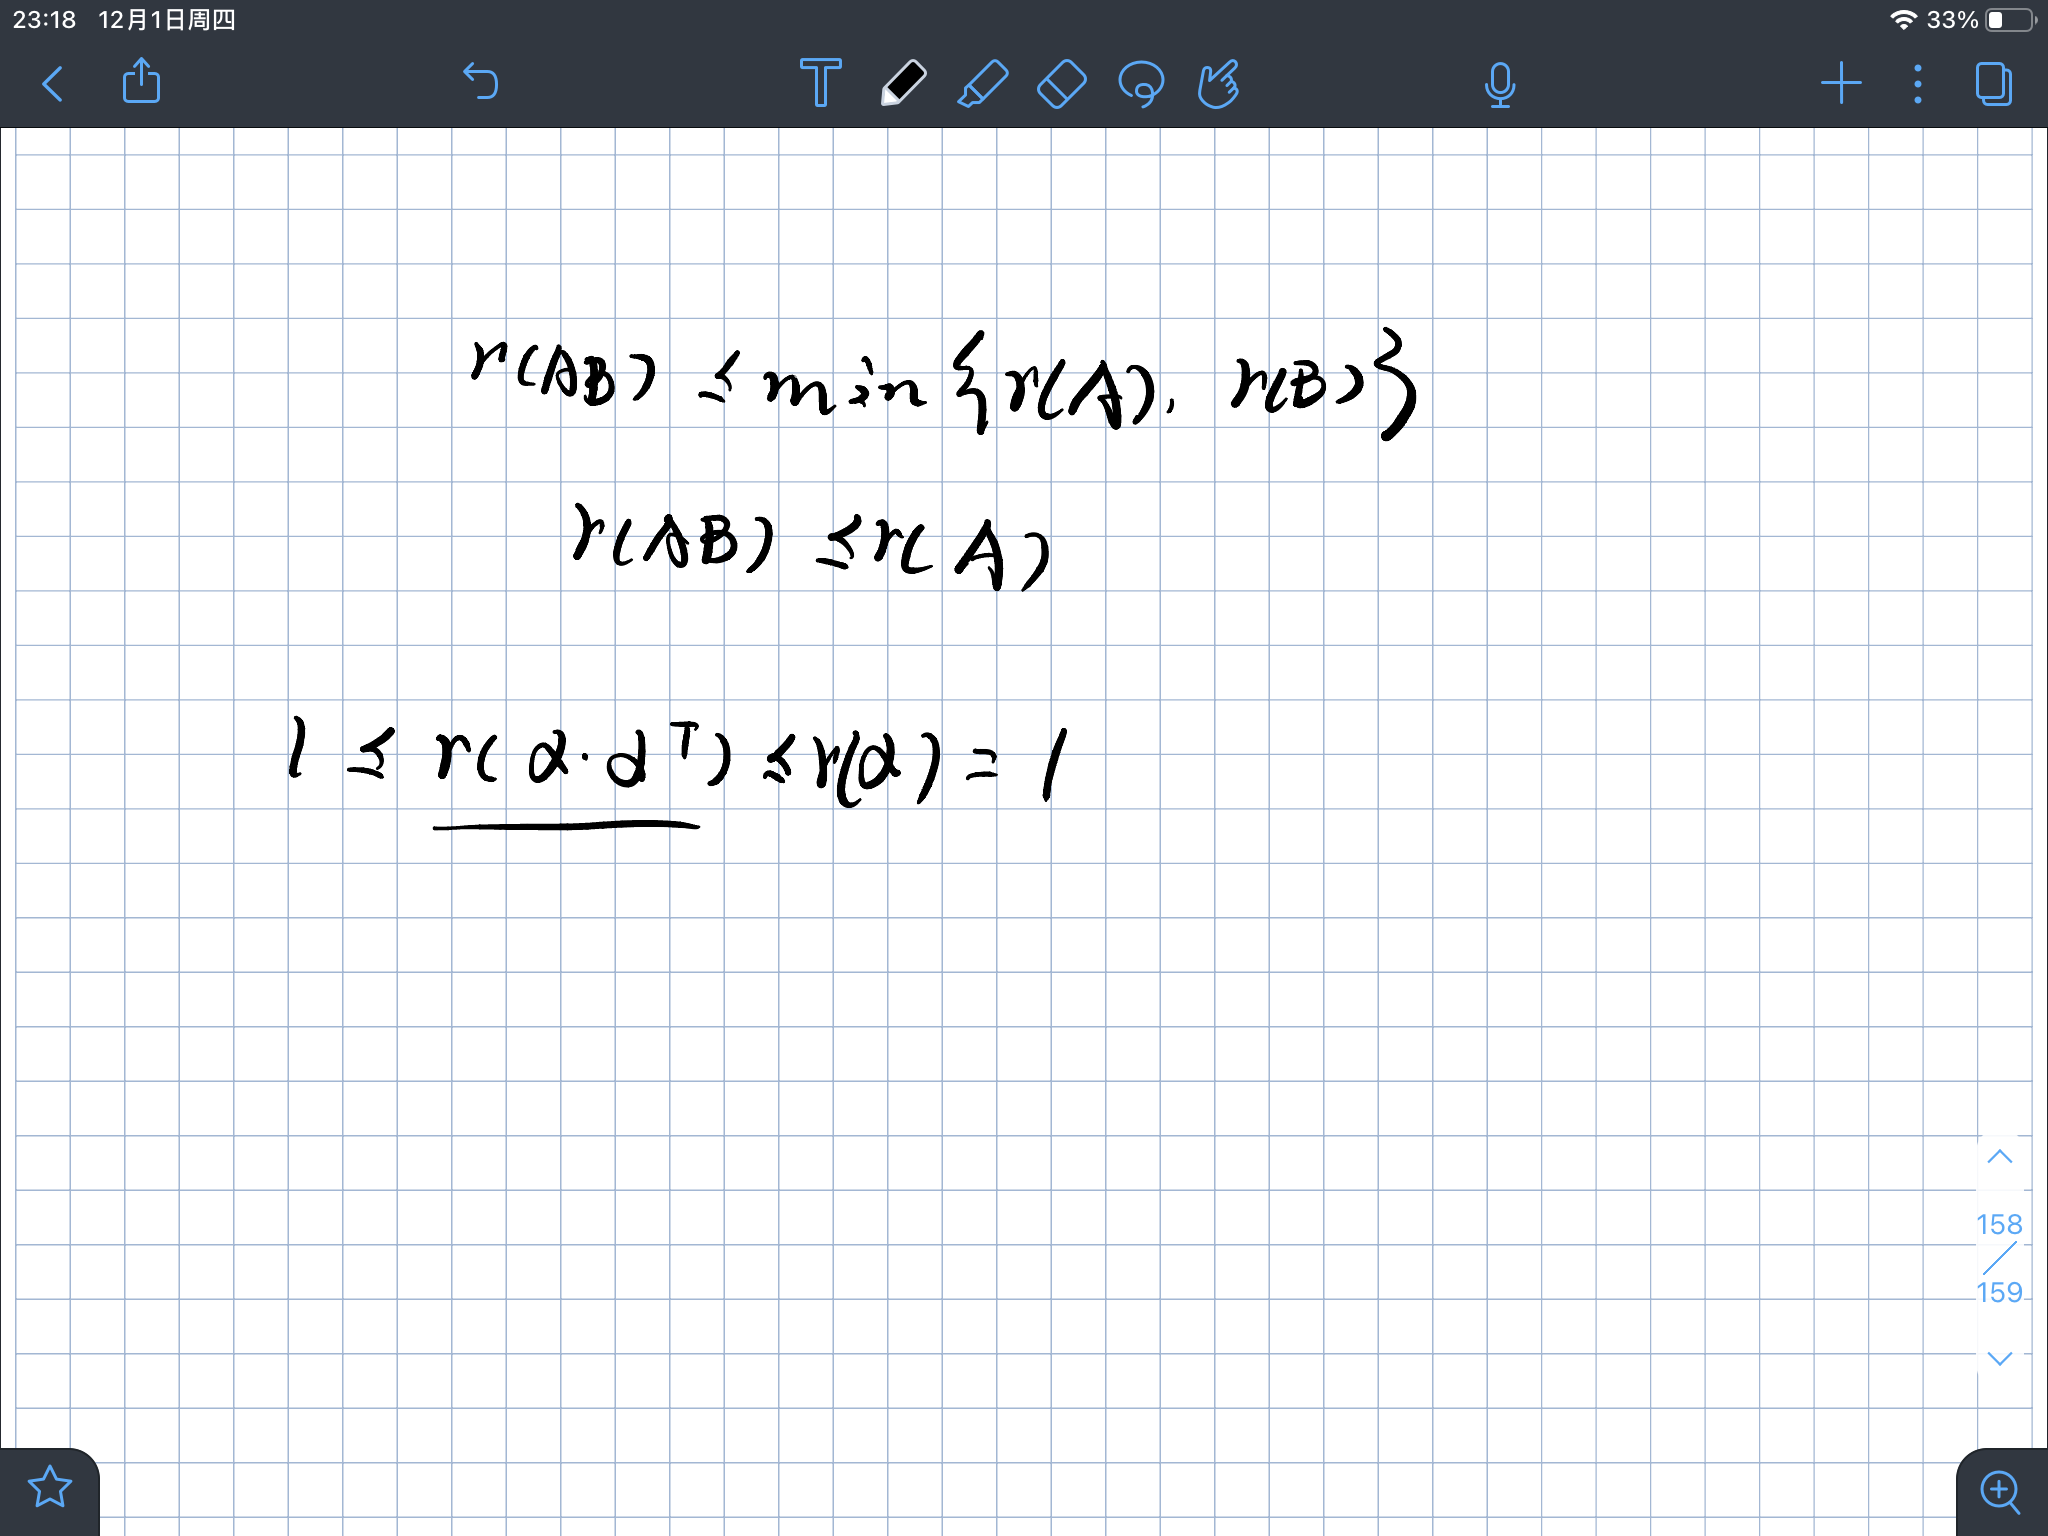 23:18 12月1日周四 33%
r(AB) ≤ min{r(A), r(B)}
r(AB) ≤ r(A)
1 ≤ r(α·αᵀ) ≤ r(α) = 1
158
/
159